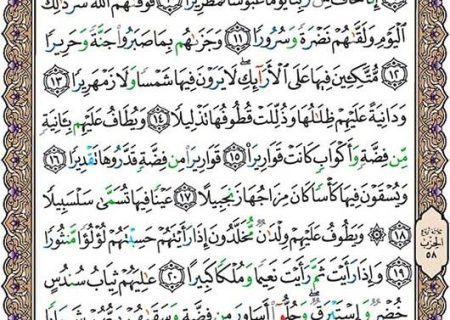 إِنَّا نَخَافُ مِن رَّبِّنَا يَوْمًا عَبُوسًا قَمْطَرِيرًا فَوَقَىٰهُمُ ٱللَّهُ شَرَّ ذَٰلِكَ
ٱلْيَوْمِ وَلَقَّىٰهُمْ نَضْرَةً وَسُرُورًا ﴿١١﴾ وَجَزَىٰهُم بِمَا صَبَرُوا۟ جَنَّةً وَحَرِيرًا
﴿١٢﴾ مُّتَّكِـِٔينَ فِيهَا عَلَى ٱلْأَرَآئِكِ ۖ لَا يَرَوْنَ فِيهَا شَمْسًا وَلَا زَمْهَرِيرًا ﴿١٣﴾
وَدَانِيَةً عَلَيْهِمْ ظِلَـٰلُهَا وَذُلِّلَتْ قُطُوفُهَا تَذْلِيلًا ﴿١٤﴾ وَيُطَافُ عَلَيْهِم بِـَٔانِيَةٍ
مِّن فِضَّةٍ وَأَكْوَابٍ كَانَتْ قَوَارِيرَا۠ ﴿١٥﴾ قَوَارِيرَا۟ مِن فِضَّةٍ قَدَّرُوهَا تَقْدِيرًا ﴿١٦﴾
وَيُسْقَوْنَ فِيهَا كَأْسًا كَانَ مِزَاجُهَا زَنجَبِيلًا ﴿١٧﴾ عَيْنًا فِيهَا تُسَمَّىٰ سَلْسَبِيلًا
﴿١٨﴾ ۞ وَيَطُوفُ عَلَيْهِمْ وِلْدَٰنٌ مُّخَلَّدُونَ إِذَا رَأَيْتَهُمْ حَسِبْتَهُمْ لُؤْلُؤًا مَّنثُورًا
﴿١٩﴾ وَإِذَا رَأَيْتَ ثَمَّ رَأَيْتَ نَعِيمًا وَمُلْكًا كَبِيرًا ﴿٢٠﴾ عَـٰلِيَهُمْ ثِيَابُ سُندُسٍ
خُضْرٌ وَإِسْتَبْرَقٌ ۖ وَحُلُّوٓا۟ أَسَاوِرَ مِن فِضَّةٍ وَسَقَىٰهُمْ رَبُّهُمْ شَرَابًا
ثلاثة أرباع
الحزب
٥٨